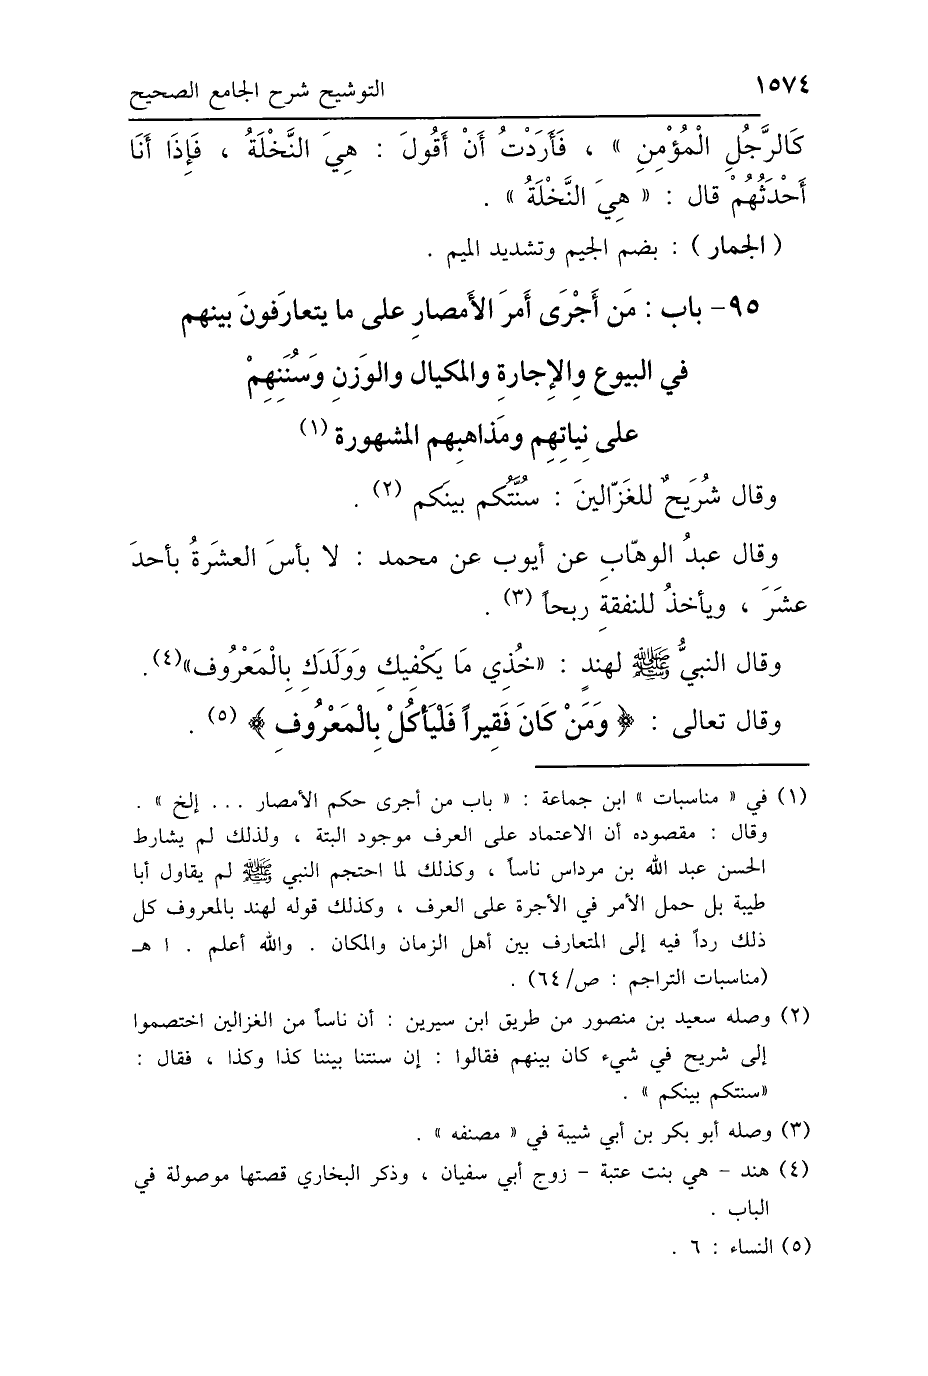 ١٥٧٤
التوشيح شرح الجامع الصحيح
كَالرَّجُلِ الْمُؤْمِنِ » ، فَأَرَدْتُ أَنْ أَقُولَ : هِيَ النَّخْلَةُ ، فَإِذَا أَنَا
أَحْدَثُهُمْ قال : « هِيَ النَّخْلَةُ » .
( الجمار ) : بضم الجيم وتشديد الميم .
٩٥- باب : مَن أَجْرَى أَمرَ الأَمصارِ على ما يتعارَفونَ بينهم
في البيوع والإِجارةِ والمكيال والوَزنِ وَسُنَنِهِمْ
على نِياتِهِم ومَذاهبِهم المشهورة (١)
وقال شُرَيحٌ للغَزّالينَ : سُنَّتُكم بينَكم (٢) .
وقال عبدُ الوهّابِ عن أيوب عن محمد : لا بأسَ العشَرةُ بأحدَ
عشَرَ ، ويأخذُ للنفقةِ ربحاً (٣) .
وقال النبيُّ ﷺ لهندٍ : «خُذِي مَا يَكْفِيكِ وَوَلَدَكِ بِالْمَعْرُوفِ»(٤).
وقال تعالى : ﴿ وَمَنْ كَانَ فَقِيراً فَلْيَأْكُلْ بِالْمَعْرُوفِ ﴾ (٥) .
(١) في « مناسبات » ابن جماعة : « باب من أجرى حكم الأمصار ... إلخ » .
وقال : مقصوده أن الاعتماد على العرف موجود البتة ، ولذلك لم يشارط
الحسن عبد الله بن مرداس ناساً ، وكذلك لما احتجم النبي ﷺ لم يقاول أبا
طيبة بل حمل الأمر في الأجرة على العرف ، وكذلك قوله لهند بالمعروف كل
ذلك رداً فيه إلى المتعارف بين أهل الزمان والمكان . والله أعلم . ا هـ
(مناسبات التراجم : ص/٦٤) .
(٢) وصله سعيد بن منصور من طريق ابن سيرين : أن ناساً من الغزالين اختصموا
إلى شريح في شيء كان بينهم فقالوا : إن سنتنا بيننا كذا وكذا ، فقال :
«سنتكم بينكم » .
(٣) وصله أبو بكر بن أبي شيبة في « مصنفه » .
(٤) هند - هي بنت عتبة - زوج أبي سفيان ، وذكر البخاري قصتها موصولة في
الباب .
(٥) النساء : ٦ .